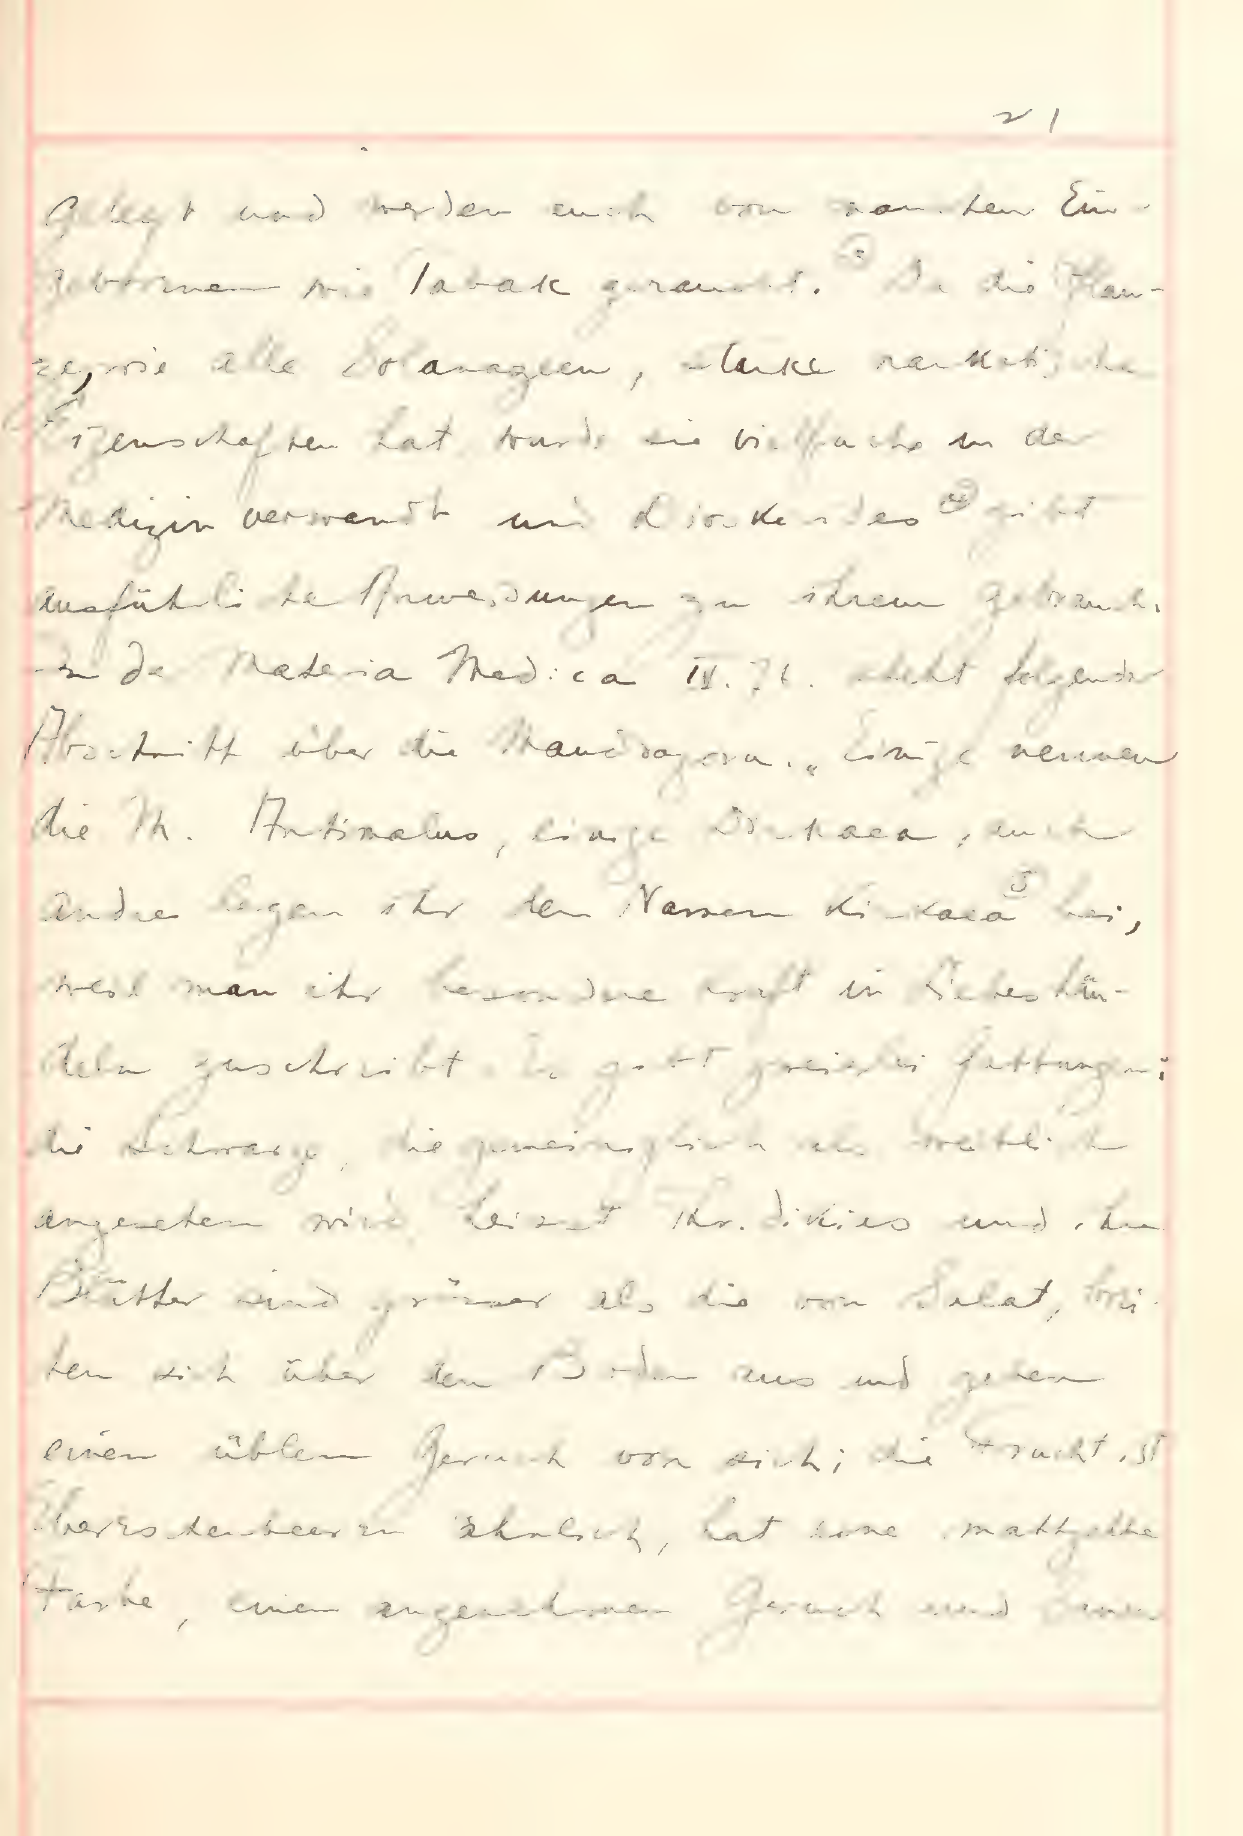 21
gelegt und werden auch von manchen Ein-
gebornen wie Tabak geraucht. Da die Pflan-
ze, wie alle Solanazeen, starke narkotische
Eigenschaften hat, wurde sie vielfach in der
Medizin verwandt und Dioskorides ④ gibt
ausführliche Anweisungen zu ihrem Gebrauch.
In der Materia Medica IV. 76. steht folgender
Abschnitt über die Mandragora. „Einige nennen
die M. Antimalus, einige Dirkaea, auch
andre legen ihr den Namen Kirkaea ⑤ bei,
weil man ihr besondere Kraft in Liebeshän-
deln zuschreibt. Es gibt zweierlei Gattungen:
die Schwarze, die gemeiniglich als weiblich
angesehen wird, heisst Thridikies und ihre
Blätter sind grüner als die vom Salat, brei-
ten sich über den Boden aus und geben
einen üblen Geruch von sich; die Frucht ist
Ebereschenbeeren ähnlich, hat eine mattgelbe
Farbe, einen angenehmen Geruch und Samen